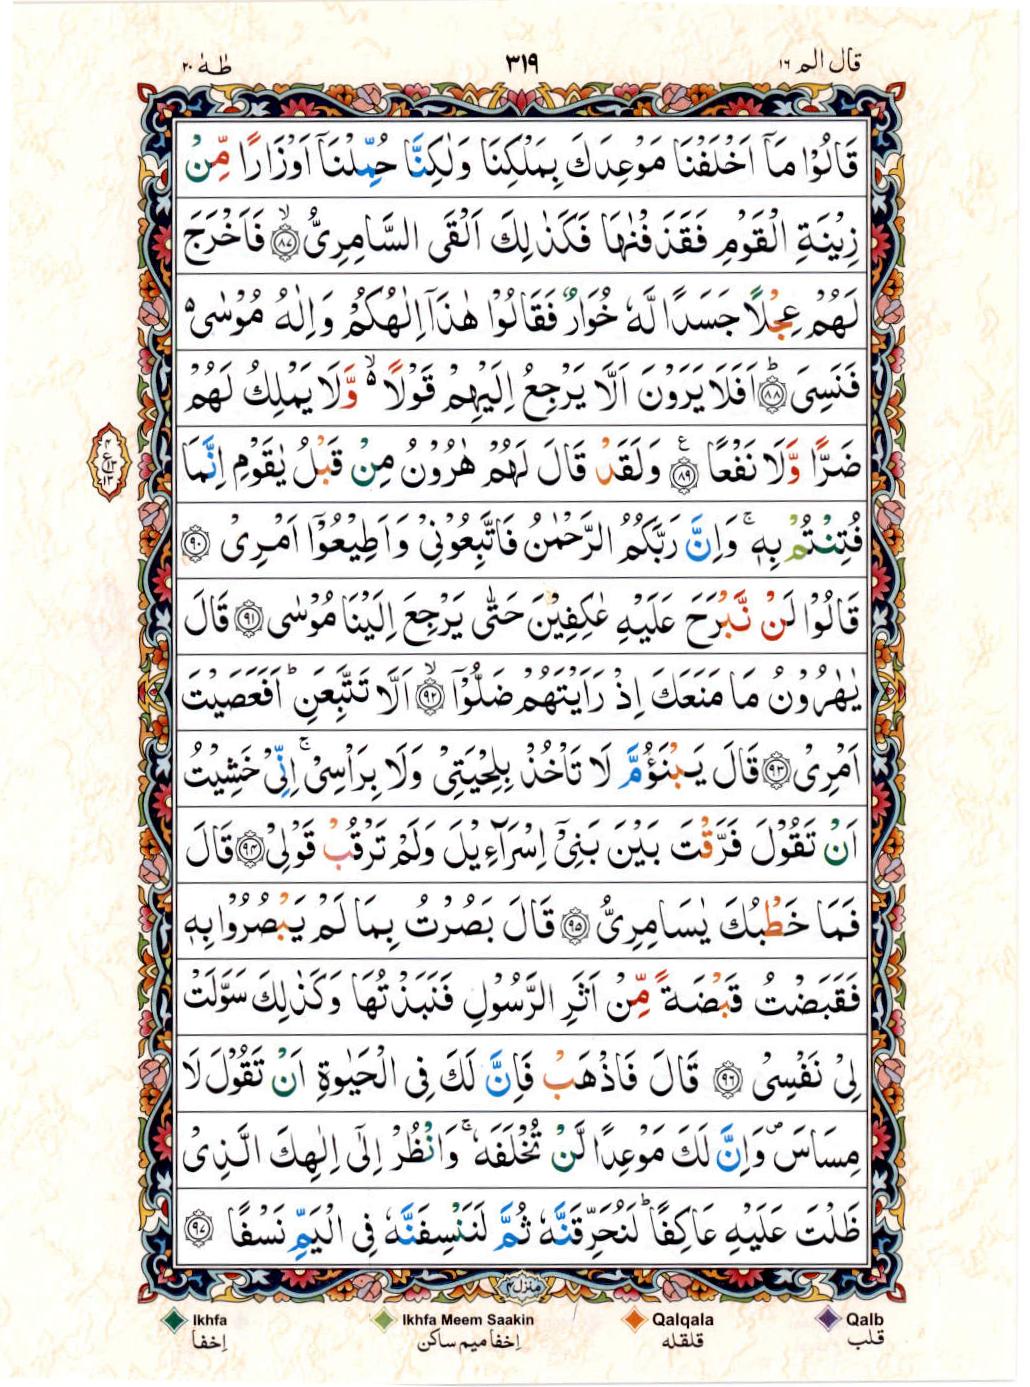 قال الم ١٦ ٣١٩ طٰهٰ ٢٠
قَالُوْا مَاۤ اَخْلَفْنَا مَوْعِدَكَ بِمَلْكِنَا وَلٰكِنَّا حُمِّلْنَاۤ اَوْزَارًا مِّنْ
زِيْنَةِ الْقَوْمِ فَقَذَفْنٰهَا فَكَذٰلِكَ اَلْقَى السَّامِرِىُّ ۙ‏﴿۸۷﴾ فَاَخْرَجَ
لَهُمْ عِجْلًا جَسَدًا لَّهٗ خُوَارٌ فَقَالُوْا هٰذَاۤ اِلٰهُكُمْ وَاِلٰهُ مُوْسٰى ۥ
فَنَسِىَ ؕ‏﴿۸۸﴾ اَفَلَا يَرَوْنَ اَلَّا يَرْجِعُ اِلَيْهِمْ قَوْلًا ۥۙ وَّلَا يَمْلِكُ لَهُمْ
ضَرًّا وَّلَا نَفْعًا ‏﴿۸۹﴾ ع وَلَقَدْ قَالَ لَهُمْ هٰرُوْنُ مِنْ قَبْلُ يٰقَوْمِ اِنَّمَا
فُتِنْتُمْ بِهٖ ۚ وَاِنَّ رَبَّكُمُ الرَّحْمٰنُ فَاتَّبِعُوْنِىْ وَاَطِيْعُوْۤا اَمْرِىْ ‏﴿۹۰﴾
قَالُوْا لَنْ نَّبْرَحَ عَلَيْهِ عٰكِفِيْنَ حَتّٰى يَرْجِعَ اِلَيْنَا مُوْسٰى ‏﴿۹۱﴾ قَالَ
يٰهٰرُوْنُ مَا مَنَعَكَ اِذْ رَاَيْتَهُمْ ضَلُّوْۤا ۙ‏﴿۹۲﴾ اَلَّا تَتَّبِعَنِ ؕ اَفَعَصَيْتَ
اَمْرِىْ ‏﴿۹۳﴾ قَالَ يَبْنَؤُمَّ لَا تَاْخُذْ بِلِحْيَتِىْ وَلَا بِرَاْسِىْ ۚ اِنِّىْ خَشِيْتُ
اَنْ تَقُوْلَ فَرَّقْتَ بَيْنَ بَنِىْۤ اِسْرَآءِيْلَ وَلَمْ تَرْقُبْ قَوْلِىْ ‏﴿۹۴﴾ قَالَ
فَمَا خَطْبُكَ يٰسَامِرِىُّ ‏﴿۹۵﴾ قَالَ بَصُرْتُ بِمَا لَمْ يَبْصُرُوْا بِهٖ
فَقَبَضْتُ قَبْضَةً مِّنْ اَثَرِ الرَّسُوْلِ فَنَبَذْتُهَا وَكَذٰلِكَ سَوَّلَتْ
لِىْ نَفْسِىْ ‏﴿۹۶﴾ قَالَ فَاذْهَبْ فَاِنَّ لَكَ فِى الْحَيٰوةِ اَنْ تَقُوْلَ لَا
مِسَاسَ ۪ وَاِنَّ لَكَ مَوْعِدًا لَّنْ تُخْلَفَهٗ ۚ وَانْظُرْ اِلٰٓى اِلٰهِكَ الَّذِىْ
ظَلْتَ عَلَيْهِ عَاكِفًا ؕ لَنُحَرِّقَنَّهٗ ثُمَّ لَنَنْسِفَنَّهٗ فِى الْيَمِّ نَسْفًا ‏﴿۹۷﴾
٤ ع ١٣ ١٣
منزل ٤
Ikhfa Ikhfa Meem Saakin Qalqala Qalb
اِخفا اِخفا ميم ساكن قلقله قلب